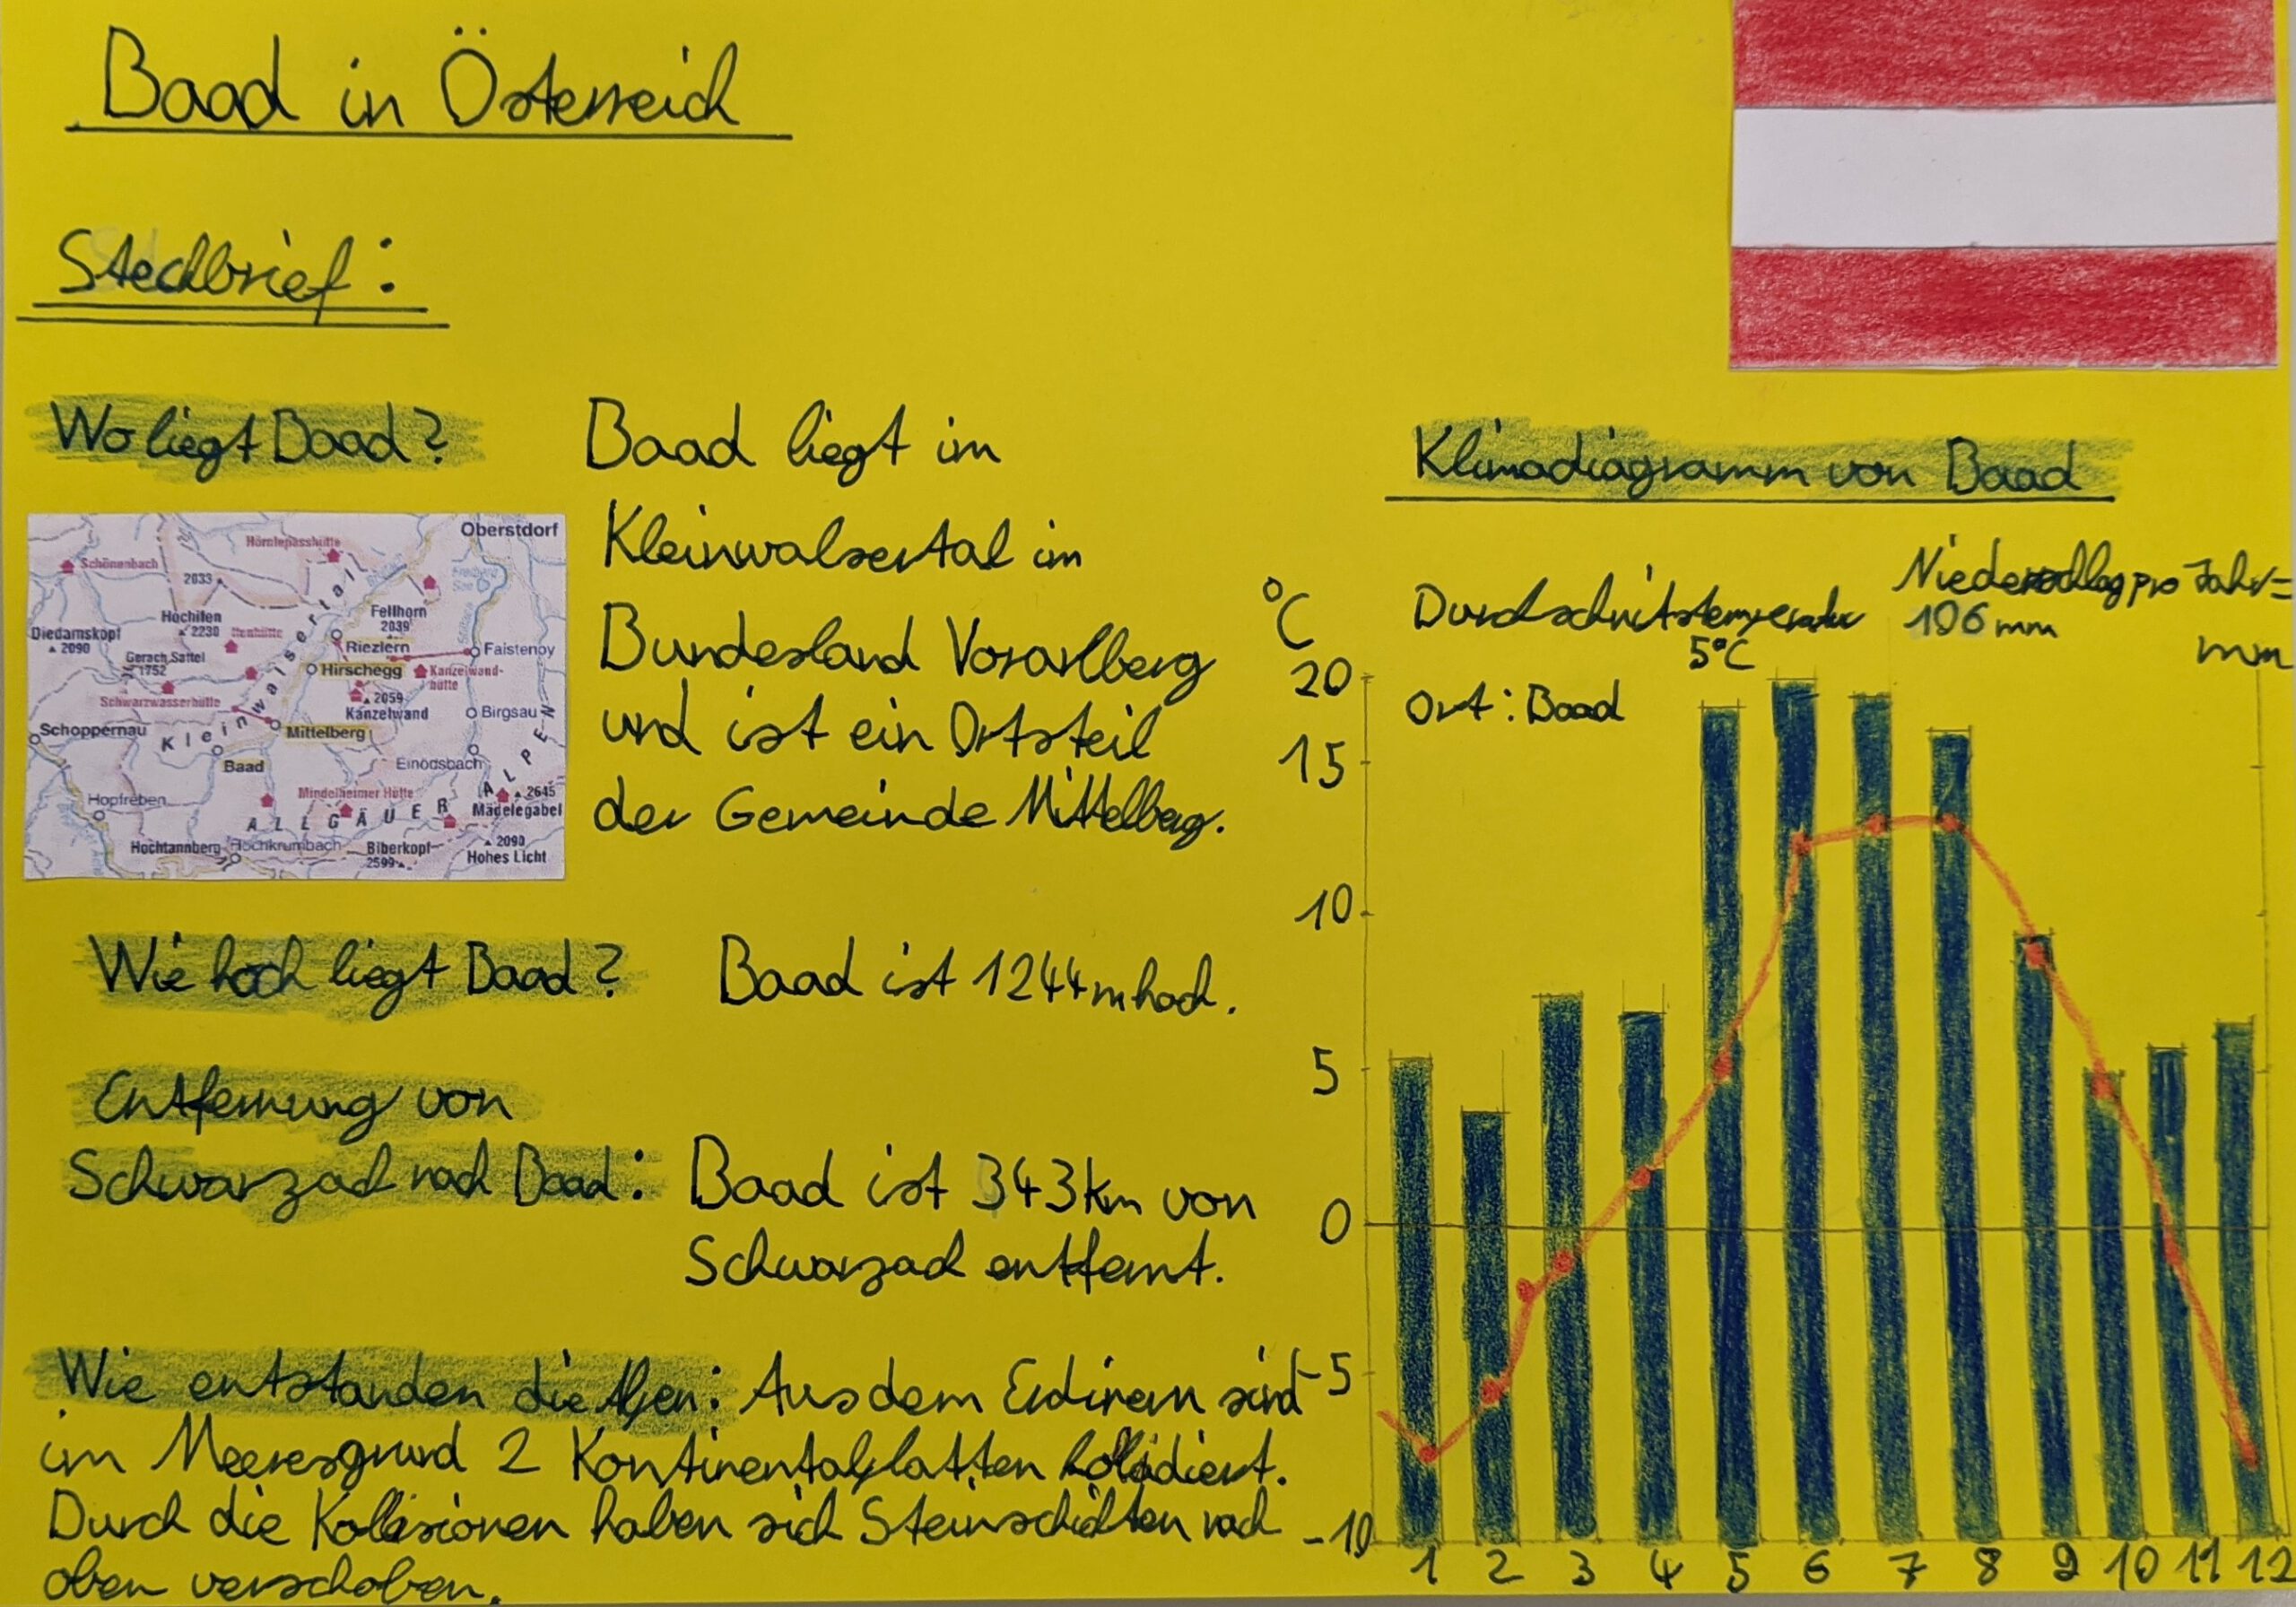 Baad in Österreich
Steckbrief:
Wo liegt Baad?
Baad liegt im
Kleinwalsertal im
Bundesland Vorarlberg
und ist ein Ortsteil
der Gemeinde Mittelberg.
Oberstdorf
Hörnlepasshütte
Schönenbach
2033
Hochifen
2230
Fellhorn
2039
Diedamskopf
2090
Gerach Sattel
1752
Riezlern
Faistenoy
Hirschegg
Kanzelwand-
hütte
Schwarzwasserhütte
2059
Kanzelwand
Birgsau
Schoppernau
Kleinwalsertal
Mittelberg
Baad
Einödsbach
Hopfreben
Mindelheimer Hütte
2645
Mädelegabel
ALLGÄUER ALPEN
Hochtannberg
Hochkrumbach
Biberkopf
2599
2090
Hohes Licht
Wie hoch liegt Baad?
Baad ist 1244m hoch.
Entfernung von
Schwarzach nach Baad:
Baad ist 343km von
Schwarzach entfernt.
Wie entstanden die Alpen: Aus dem Erdinern sind
im Meeresgrund 2 Kontinentalplatten kollidiert.
Durch die Kollisionen haben sich Steinschichten nach
oben verschoben.
Klimadiagramm von Baad
°C
Durchschnitstemperatur
5°C
Niederschlag pro Jahr=
196 mm
mm
Ort: Baad
20
15
10
5
0
-5
-10
1 2 3 4 5 6 7 8 9 10 11 12